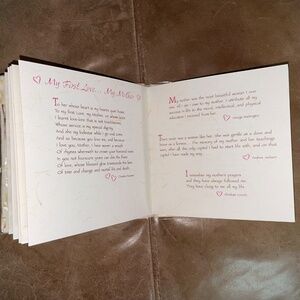 My First Love... My Mother
To her whose heart is my heart's quiet home,
To my first Love, my Mother, on whose knee
I learnt love-lore that is not troublesome;
Whose service is my special dignity,
And she my loadstar while I go and come
And so because you love me, and because
I love you, Mother, I have woven a wreath
Of rhymes wherewith to crown your honored name:
In you not fourscore years can dim the flame
Of love, whose blessed glow transcends the laws
Of time and change and mortal life and death.
My mother was the most beautiful woman I ever
saw. All I am I owe to my mother. I attribute all my
success in life to the moral, intellectual, and physical
education I received from her.
George Washington
There never was a woman like her. She was gentle as a dove and
brave as a lioness... The memory of my mother and her teachings
were, after all, the only capital I had to start life with, and on that
capital I have made my way.
Andrew Jackson
I remember my mother's prayers
and they have always followed me.
They have clung to me all my life.
Abraham Lincoln